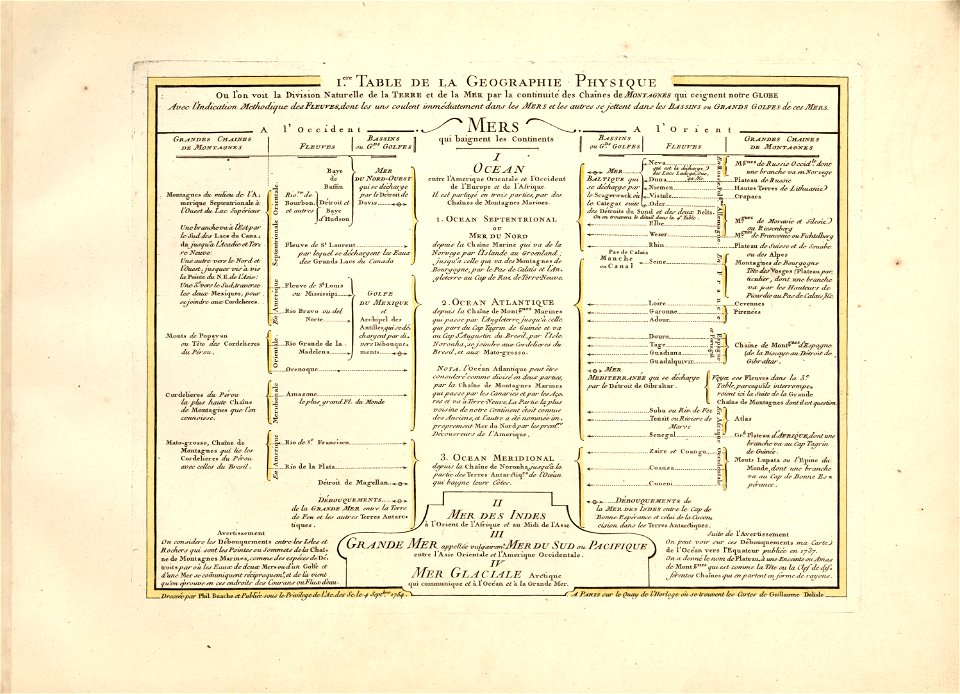 1.ere TABLE DE LA GEOGRAPHIE PHYSIQUE
Ou l'on voit la Division Naturelle de la TERRE et de la MER par la continuité des Chaines de MONTAGNES qui ceignent notre GLOBE
Avec l'Indication Methodique des FLEUVES, dont les uns coulent immédiatement dans les MERS et les autres se jettent dans les BASSINS ou GRANDS GOLFES de ces MERS.
A l'Occident
MERS
qui baignent les Continents
A l'Orient
GRANDES CHAINES
DE MONTAGNES
FLEUVES
BASSINS
ou G.ds GOLFES
BASSINS
ou G.ds GOLFES
FLEUVES
GRANDES CHAINES
DE MONTAGNES
Montagnes du milieu de l'A-
merique Septentrionale à
l'Ouest du Lac Supérieur
Une branche va à l'Est par
le Sud des Lacs du Cana-
da, jusqu'à l'Acadie et Ter-
re Neuve
Une autre vers le Nord et
l'Ouest, jusques vis à vis
la Pointe du N.E. de l'Asie:
Une 3.e vers le Sud, traverse
les deux Mexiques, pour
se joindre aux Cordelieres.
Monts de Popayan
ou Tête des Cordelieres
du Pérou.
Cordelieres du Pérou
la plus haute Chaîne
de Montagnes que l'on
connoisse.
Mato-grosso, Chaîne de
Montagnes qui lie les
Cordelieres du Pérou
avec celles du Bresil.
En Amérique Septentrionale Orientale
En Amérique Meridionale Orientale
Riv.res de
Bourbon
et autres
Baye
de
Baffin
Détroit et
Baye
d'Hudson
MER
DU NORD-OUEST
qui se décharge
par le Détroit de
Davis
Fleuve de S.t Laurent
par lequel se déchargent les Eaux
des Grands Lacs du Canada
Fleuve de S.t Louis
ou Mississipi
Rio Bravo ou del
Norte
Rio Grande de la
Madelena
GOLFE
DU MEXIQUE
et
Archipel des
Antilles, qui se dé-
chargent par di-
vers Débouque-
ments
Orenoque
Amazone
le plus grand Fl. du Monde
Rio de S.t Francisco
Rio de la Plata
Détroit de Magellan
DÉBOUQUEMENTS
de la GRANDE MER entre la Terre
de Feu et les autres Terres Antarc-
tiques.
I
OCEAN
entre l'Amérique Orientale et l'Occident
de l'Europe et de l'Afrique
Il est partagé en trois parties, par des
Chaînes de Montagnes Marines.
1. OCEAN SEPTENTRIONAL
ou
MER DU NORD
depuis la Chaîne Marine qui va de la
Norvege par l'Islande au Groenland;
jusqu'à celle qui va des Montagnes de
Bourgogne, par le Pas de Calais et l'An-
gleterre au Cap de Raz, de Terre Neuve.
2. OCEAN ATLANTIQUE
depuis la Chaîne de Mont.gnes Marines
qui passe par l'Angleterre, jusqu'à celle
qui part du Cap Tagrin de Guinée et va
au Cap S.t Augustin du Bresil, par l'Isle
Noronha, se joindre aux Cordelieres du
Bresil, et aux Mato-grosso.
NOTA. l'Océan Atlantique peut être
consideré comme divisé en deux parties,
par la Chaîne de Montagnes Marines
qui passe par les Canaries et par les Aço-
res et va à Terre-Neuve. La Partie la plus
voisine de notre Continent étoit connue
des Anciens, et l'autre a été nommée im-
proprement Mer du Nord par les prem.ers
Découvreurs de l'Amerique.
3. OCEAN MERIDIONAL
depuis la Chaîne de Noronha, jusqu'à la
partie des Terres Antarctiq.es de l'Océan
qui baigne leurs Côtes.
MER
BALTIQUE qui
se décharge par
le Scagerrack ou
le Categat suite
des Détroits du Sund et des deux Belts.
On en trouvera le détail dans la 2.e Table
Neva,
qui est la décharge
des Lacs Ladoga, One-
ga, &c.
Duna
Niemen
Vistule
Oder
Elbe
Weser
Rhin
Pas de Calais
Manche
ou Canal
Seine
Loire
Garonne
Adour
Douro
Tage
Guadiana
Guadalquivir
MER
MEDITERRANÉE qui se décharge
par le Détroit de Gibraltar.
Voyez ses Fleuves dans la 3.e
Table, parcequ'ils interrompe-
roient ici la Suite de la Grande
Chaîne de Montagnes dont il est question
Subu ou Rio de Fez
Tensit ou Riviere de
Maroc
Senegal
Zaire et Coango
Coanza
Cuneni
DÉBOUQUEMENTS de
la MER DES INDES entre le Cap de
Bonne Espérance et celui de la Circon-
cision dans les Terres Antarctiques.
En Russie
et Pologne
En Allemagne
En France
Espagne
et Portugal
En Afrique Occidentale
M.gnes de Russie Occid.le dont
une branche va en Norvege
Plateau de Russie
Hautes Terres de Lithuanie
Crapacs
M.gnes de Moravie et Silesie
ou Riesenberg
M.gnes de Franconie ou Fichtelberg
Plateau de Suisse et de Souabe
ou des Alpes
Montagnes de Bourgogne
Tête des Vosges (Plateau par-
ticulier, dont une branche
va par les Hauteurs de
Picardie au Pas de Calais, &c.
Cevennes
Pirenées
Chaîne de Mont.gnes d'Espagne
(de la Biscaye au Détroit de
Gibraltar.
Atlas
Gr.d Plateau d'AFRIQUE, dont une
branche va au Cap Tagrin
de Guinée.
Monts Lupata ou l'Epine du
Monde, dont une branche
va au Cap de Bonne Es-
pérance.
II
MER DES INDES
à l'Orient de l'Afrique et au Midi de l'Asie
III
GRANDE MER appellée vulgairem.t MER DU SUD ou PACIFIQUE
entre l'Asie Orientale et l'Amérique Occidentale.
IV
MER GLACIALE Arctique
qui communique et à l'Océan et à la Grande Mer.
Avertissement
On considere les Débouquements entre les Isles et
Rochers qui sont les Pointes ou Sommets de la Chaî-
ne de Montagnes Marines, comme des espèces de Dé-
troits par où les Eaux de deux Mers ou d'un Golfe et
d'une Mer se comuniquent réciproquem.t, et de là vient
qu'on éprouve en ces endroits des Courans ou Flux d'eau.
Suite de l'Avertissement
On peut voir sur ces Débouquements ma Carte
de l'Océan vers l'Equateur publiée en 1737.
On a donné le nom de Plateau, à une Enceinte ou Amas
de Mont.gnes qui est comme la Tête ou la Clef de dif-
férentes Chaînes qui en partent en forme de rayons.
Dressée par Phil. Buache et Publiée sous le Privilege de l'Ac. des Sc. le 4 Sept.bre 1754.
A PARIS sur le Quay de l'Horloge où se trouvent les Cartes de Guillaume Delisle.